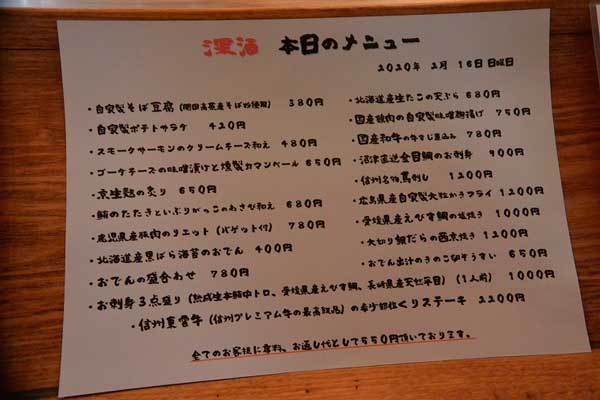 澤酒 本日のメニュー
2020年 2月 16日 日曜日
・自家製そば豆腐（開田高原産そば粉使用） 380円
・自家製ポテトサラダ 420円
・スモークサーモンのクリームチーズ和え 480円
・ゴーダチーズの味噌漬けと燻製カマンベール 650円
・京生麩の炙り 650円
・鮪のたたきといぶりがっこのわさび和え 680円
・鹿児島産豚肉のリエット（バゲット付） 780円
・北海道産黒ばら海苔のおでん 400円
・おでんの盛合わせ 780円
・お刺身3点盛り（熟成生本鮪中トロ、愛媛県産えびす鯛、長崎県産天然平目）（1人前） 1000円
・信州東雲牛（信州プレミアム牛の最高級品）の希少部位くりステーキ 2200円
・北海道産生たこの天ぷら 680円
・国産豚肉の自家製味噌麹漬け 750円
・国産和牛の牛すじ煮込み 780円
・沼津直送金目鯛のお刺身 900円
・信州名物馬刺し 1200円
・広島県産自家製大粒かきフライ 1200円
・愛媛県産えびす鯛の塩焼き 1000円
・大切り銀だらの西京焼き 1200円
・おでん出汁のきのこ卵ぞうすい 650円
全てのお客様に席料、お通し代として550円頂いております。